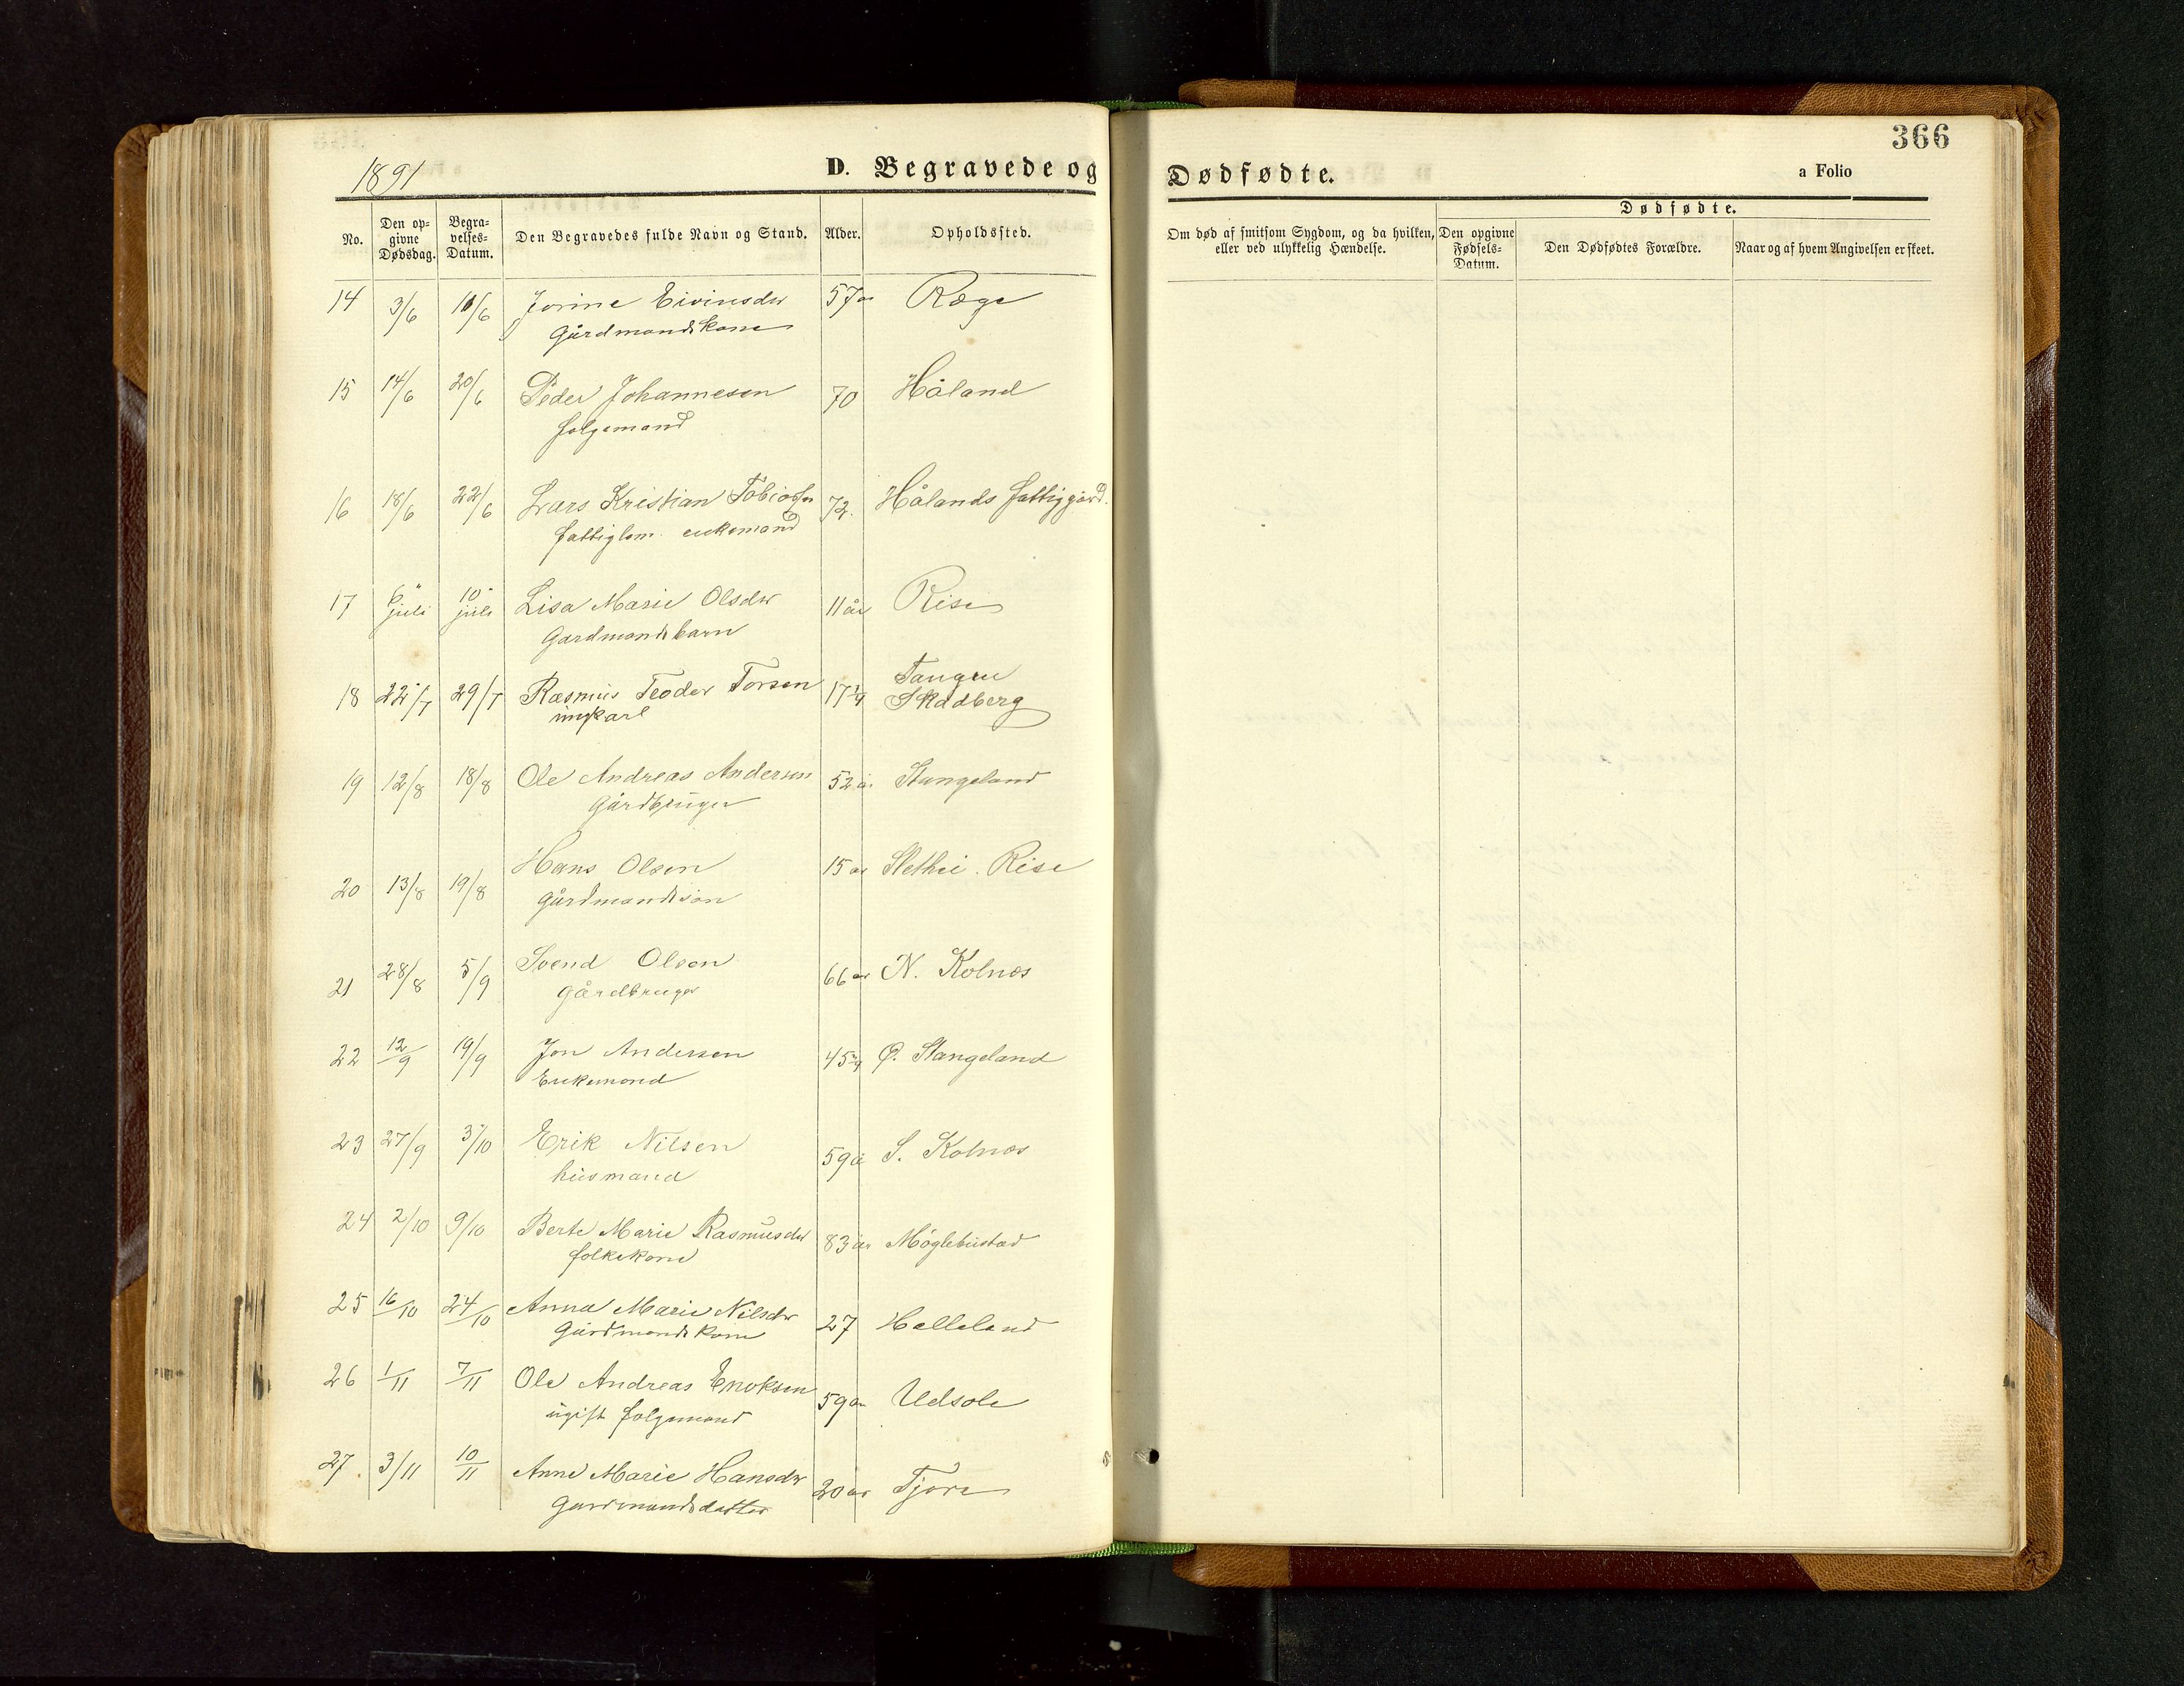 366
1891
D. Begravede og Dødfødte.
a Folio
No.
Den op-
givne
Dødsdag.
Begra-
velses-
Datum.
Den Begravedes fulde Navn og Stand.
Alder.
Opholdssted.
Om død af smitsom Sygdom, og da hvilken,
eller ved ulykkelig Hændelse.
Dødfødte.
Den opgivne
Fødsels-
Datum.
Den Dødfødtes Forældre.
Naar og af hvem Angivelsen er skeet.
14 3/6 10/6 Jorine Eivinsdtr 57 år Ræge
Gårdmandskone
15 14/6 20/6 Peder Johannesen 70 Håland
folgemand
16 18/6 22/6 Lars Kristian Tobiasen 72 Hålands fattiggård.
fattiglem. enkemand
17 6 juli 10 juli Lisa Marie Olsdtr 11 år Risa
Gardmandsbarn
18 22/7 29/7 Rasmus Teodor Torsen 17 3/4 Tangen
ungkarl Skadberg
19 12/8 18/8 Ole Andreas Andersen 52 år Stangeland
Gårdbruger
20 13/8 19/8 Hans Olsen 15 år Slethei. Risa
gårdmandssøn
21 28/8 5/9 Svend Olsen 66 år N. Kolnes
gårdbruger
22 12/9 19/9 Jon Andersen 45 3/4 Ø. Stangeland
Enkemand
23 27/9 3/10 Erik Nilsen 59 å S. Kolnes
husmand
24 2/10 9/10 Berte Marie Rasmusdtr 83 år Møglebustad
folkekone
25 16/10 24/10 Anna Marie Nilsdtr 27 Helleland
Gårdmandskone
26 1/11 7/11 Ole Andreas Enoksen 59 år Udsole
ugift folgemand
27 3/11 10/11 Anne Marie Hansdtr 20 år Tjora
Gardmandsdatter